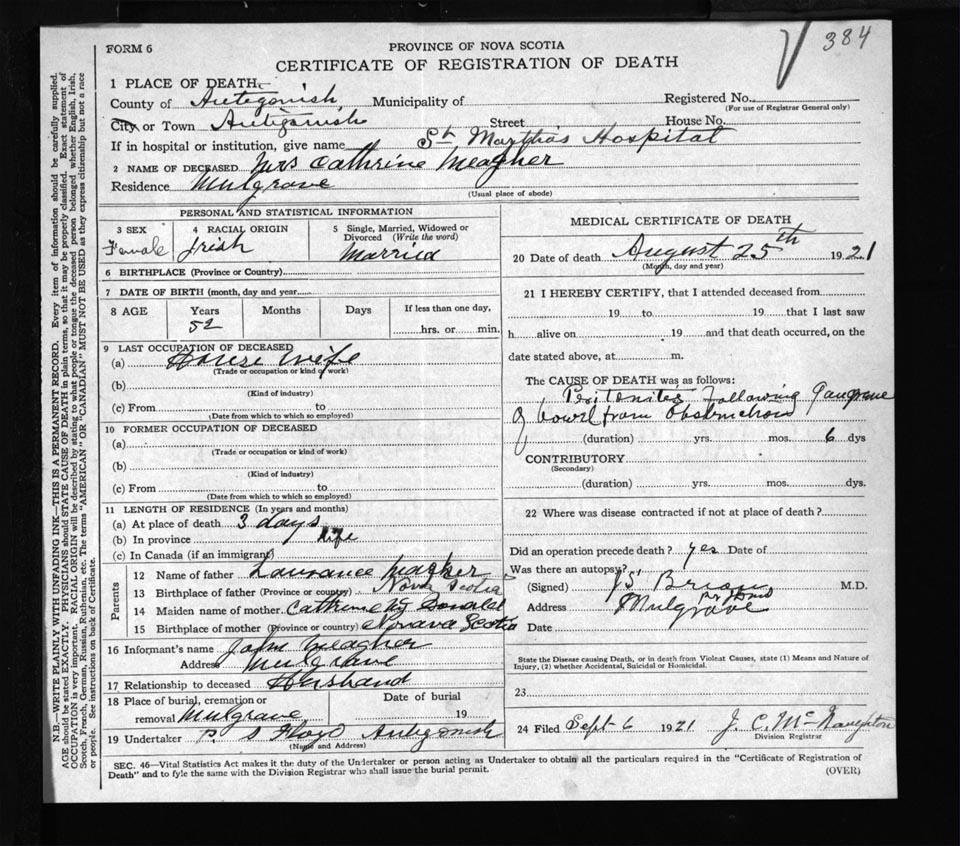 384
FORM 6
PROVINCE OF NOVA SCOTIA
CERTIFICATE OF REGISTRATION OF DEATH
1 PLACE OF DEATH
County of Antigonish, Municipality of Registered No.
(For use of Registrar General only)
City or Town Antigonish Street House No.
If in hospital or institution, give name St Marthas Hospital
2 NAME OF DECEASED Mrs Cathrine Meagher
Residence Mulgrave
(Usual place of abode)
PERSONAL AND STATISTICAL INFORMATION
3 SEX 4 RACIAL ORIGIN 5 Single, Married, Widowed or
Divorced (Write the word)
Female Irish Married
6 BIRTHPLACE (Province or Country)
7 DATE OF BIRTH (month, day and year)
8 AGE Years Months Days If less than one day,
52 hrs. or min.
9 LAST OCCUPATION OF DECEASED
(a) House Wife
(Trade or occupation or kind of work)
(b)
(Kind of industry)
(c) From to
(Date from which to which so employed)
10 FORMER OCCUPATION OF DECEASED
(a)
(Trade or occupation or kind of work)
(b)
(Kind of industry)
(c) From to
(Date from which to which so employed)
11 LENGTH OF RESIDENCE (In years and months)
(a) At place of death 3 days
(b) In province life
(c) In Canada (if an immigrant)
Parents
12 Name of father Laurance Meagher
13 Birthplace of father (Province or country) Nova Scotia
14 Maiden name of mother Cathrine Mc Donald
15 Birthplace of mother (Province or country) Novava Scotia
16 Informant's name John Meagher
Address Mulgrave
17 Relationship to deceased Husband
18 Place of burial, cremation or Date of burial
removal Mulgrave 19
19 Undertaker P. S Floyd Antigonish
(Name and Address)
MEDICAL CERTIFICATE OF DEATH
20 Date of death August 25th 1921
(Month, day and year)
21 I HEREBY CERTIFY, that I attended deceased from
19 to 19 that I last saw
h alive on 19 and that death occurred, on the
date stated above, at m.
The CAUSE OF DEATH was as follows:
Peritonitis following Gangrene
of bowel from Obstruction
(duration) yrs. mos. 6 dys
CONTRIBUTORY
(Secondary)
(duration) yrs. mos. dys.
22 Where was disease contracted if not at place of death?
Did an operation precede death? yes Date of
Was there an autopsy?
(Signed) M.D.
Address Mulgrave
Date
State the Disease causing Death, or in death from Violent Causes, state (1) Means and Nature of
Injury, (2) whether Accidental, Suicidal or Homicidal.
23
24 Filed Sept 6 1921 J. C. McNaughton
Division Registrar
SEC. 46—Vital Statistics Act makes it the duty of the Undertaker or person acting as Undertaker to obtain all the particulars required in the "Certificate of Registration of
Death" and to fyle the same with the Division Registrar who shall issue the burial permit.
(OVER)
N.B.—WRITE PLAINLY WITH UNFADING INK—THIS IS A PERMANENT RECORD. Every item of information should be carefully supplied.
AGE should be stated EXACTLY. PHYSICIANS should STATE CAUSE OF DEATH in plain terms, so that it may be properly classified. Exact statement of
OCCUPATION is very important. RACIAL ORIGIN will be described by stating to what people or tongue the deceased person belonged whether English, Irish,
Scotch, French, German, Russian, Ruthenian, etc. The terms "AMERICAN" OR "CANADIAN" MUST NOT BE USED as they express citizenship but not a race
or people. See instructions on back of Certificate.